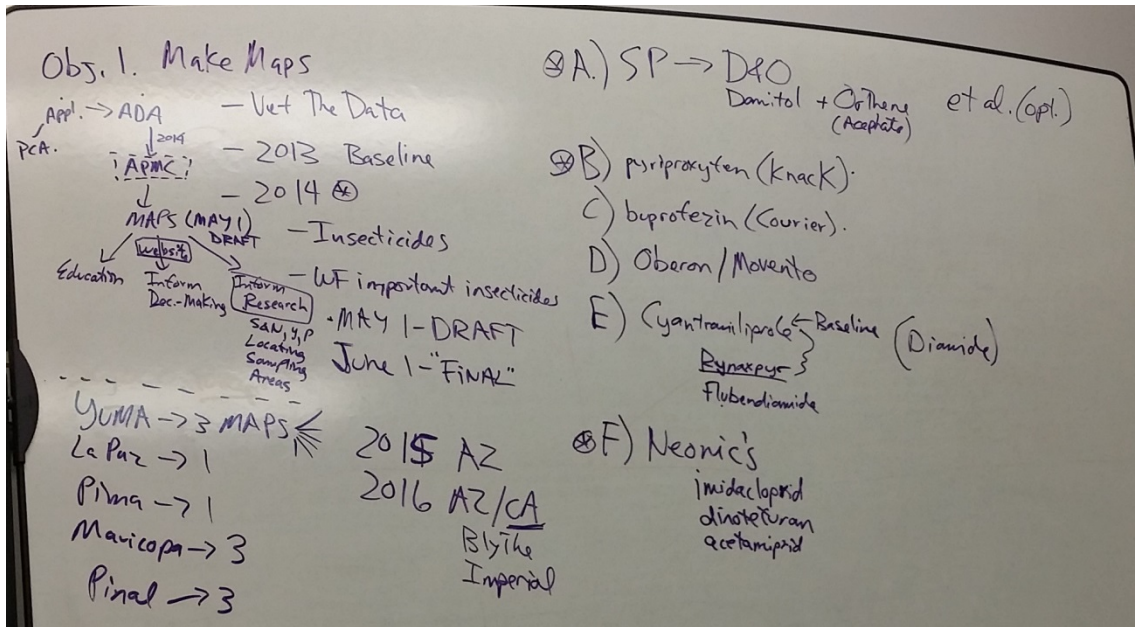 Obj. 1. Make Maps
Appl. → ADA
PCA.
2014
APMC
MAPS (MAY 1)
DRAFT
Website
Education
Inform
Dec.-Making
Inform
Research
S&N, Y, P
Locating
Sampling
Areas
- Vet The Data
- 2013 Baseline
- 2014 ⊛
- Insecticides
- WF important insecticides
· MAY 1 - DRAFT
June 1 - "FINAL"
YUMA → 3 MAPS
La Paz → 1
Pima → 1
Maricopa → 3
Pinal → 3
2015 AZ
2016 AZ/CA
Blythe
Imperial
⊛A.) SP → D&O et al. (opt.)
Danitol + Orthene
(Acephate)
⊛B) pyriproxyfen (Knack).
C) buprofezin (Courier).
D) Oberon/Movento
E) Cyantraniliprole ← Baseline (Diamide)
Rynaxpyr
flubendiamide
⊛F) Neonic's
imidacloprid
dinotefuran
acetamiprid